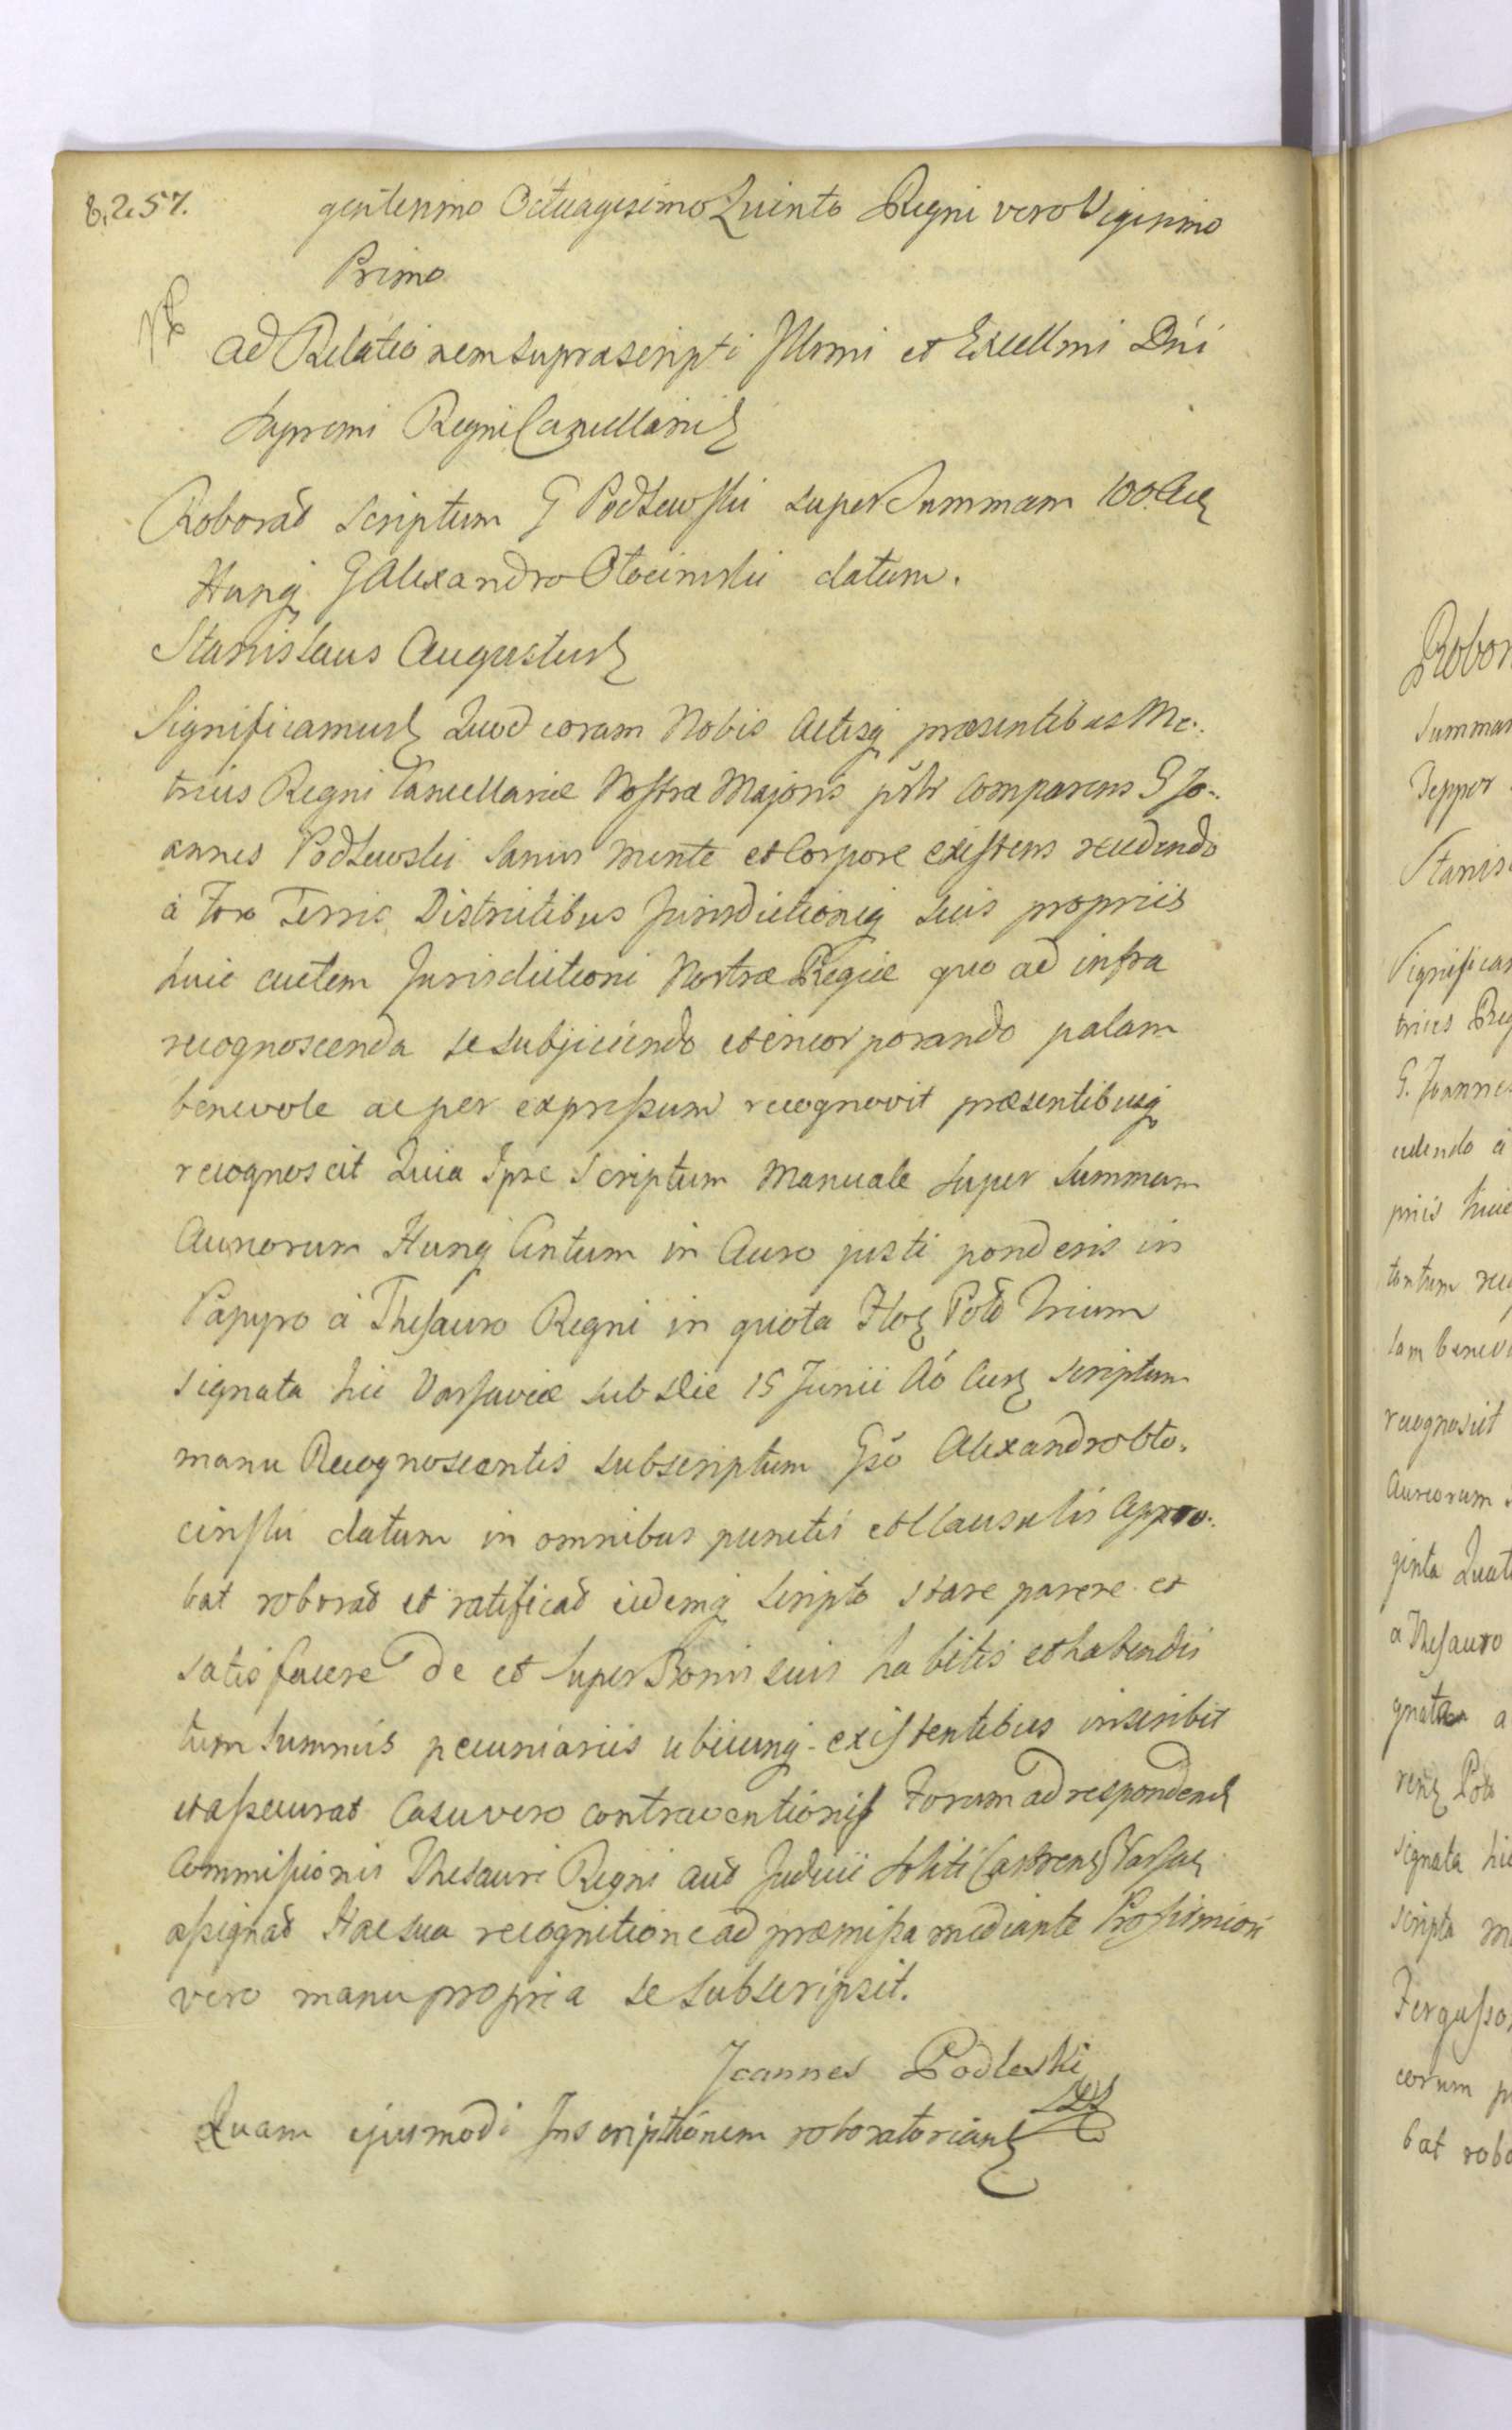 8.257.
gentesimo Octuagesimo Quinto Regni vero Vigesimo
Primo
ad Relationem suprascripti Illmi et Excellmi Dni
Supremi Regni Cancellarii
Roborat Scriptum G Podlewski super Summam 100 Aur
Hung. G Alexandro Otocinski datum.
Stanislaus Augustus
Significamus Quod coram Nobis Actisq præsentibus Me.
trices Regni Cancellariæ Nostræ Majoris psltr comparens G Jo..
annes Podlewski Sanus mente et Corpore existens recedendo
à Foro Terris Districtibus Jurisdictioniq suis propriis
huic autem Jurisdictioni Nostræ Regiæ quo ad infra
recognoscenda se subjiciendo et incorporando palam
benevole ac per expressum recognovit præsentibusq
recognoscit Quia Ipse Scriptum Manuale super Summam
Aureorum Hung Centum in Auro justi ponderis in
Papyro à Thesauro Regni in quota Flor Pold Trium
signata hic Varsaviæ sub die 15 Junii Ao Curr Scriptum
manu Recognoscentis subscriptum Gso Alexandro Oto.
cinski datum in omnibus punctis et Clausulis Appro..
bat roborat et ratificat eidemq Scripto stare parere et
satisfacere de et super Bonis suis habitis et habendis
tum Summis pecuniariis ubicunq existentibus inscribit
et assecurat Casu vero contraventionis Forum ad respondend
Commissionis Thesauri Regni aut Judicii Soliti Castrens Varsav
assignat Hac sua recognitione ad præmissa mediante
vero manu propria se subscripsit.
Joannes Podleski
Quam ejusmodi Inscriptionem roboratoriam
Robor
Summam
Tepper
Stanis
Significam
trices Reg
G. Joannes
cedendo à
priis huic
tantum rec
lam benev
recognoscit
Aureorum
ginta Quat
a Thesauro
gnata a
Pold
signata hic
scripta m
Fergusso
corum p
bat robo